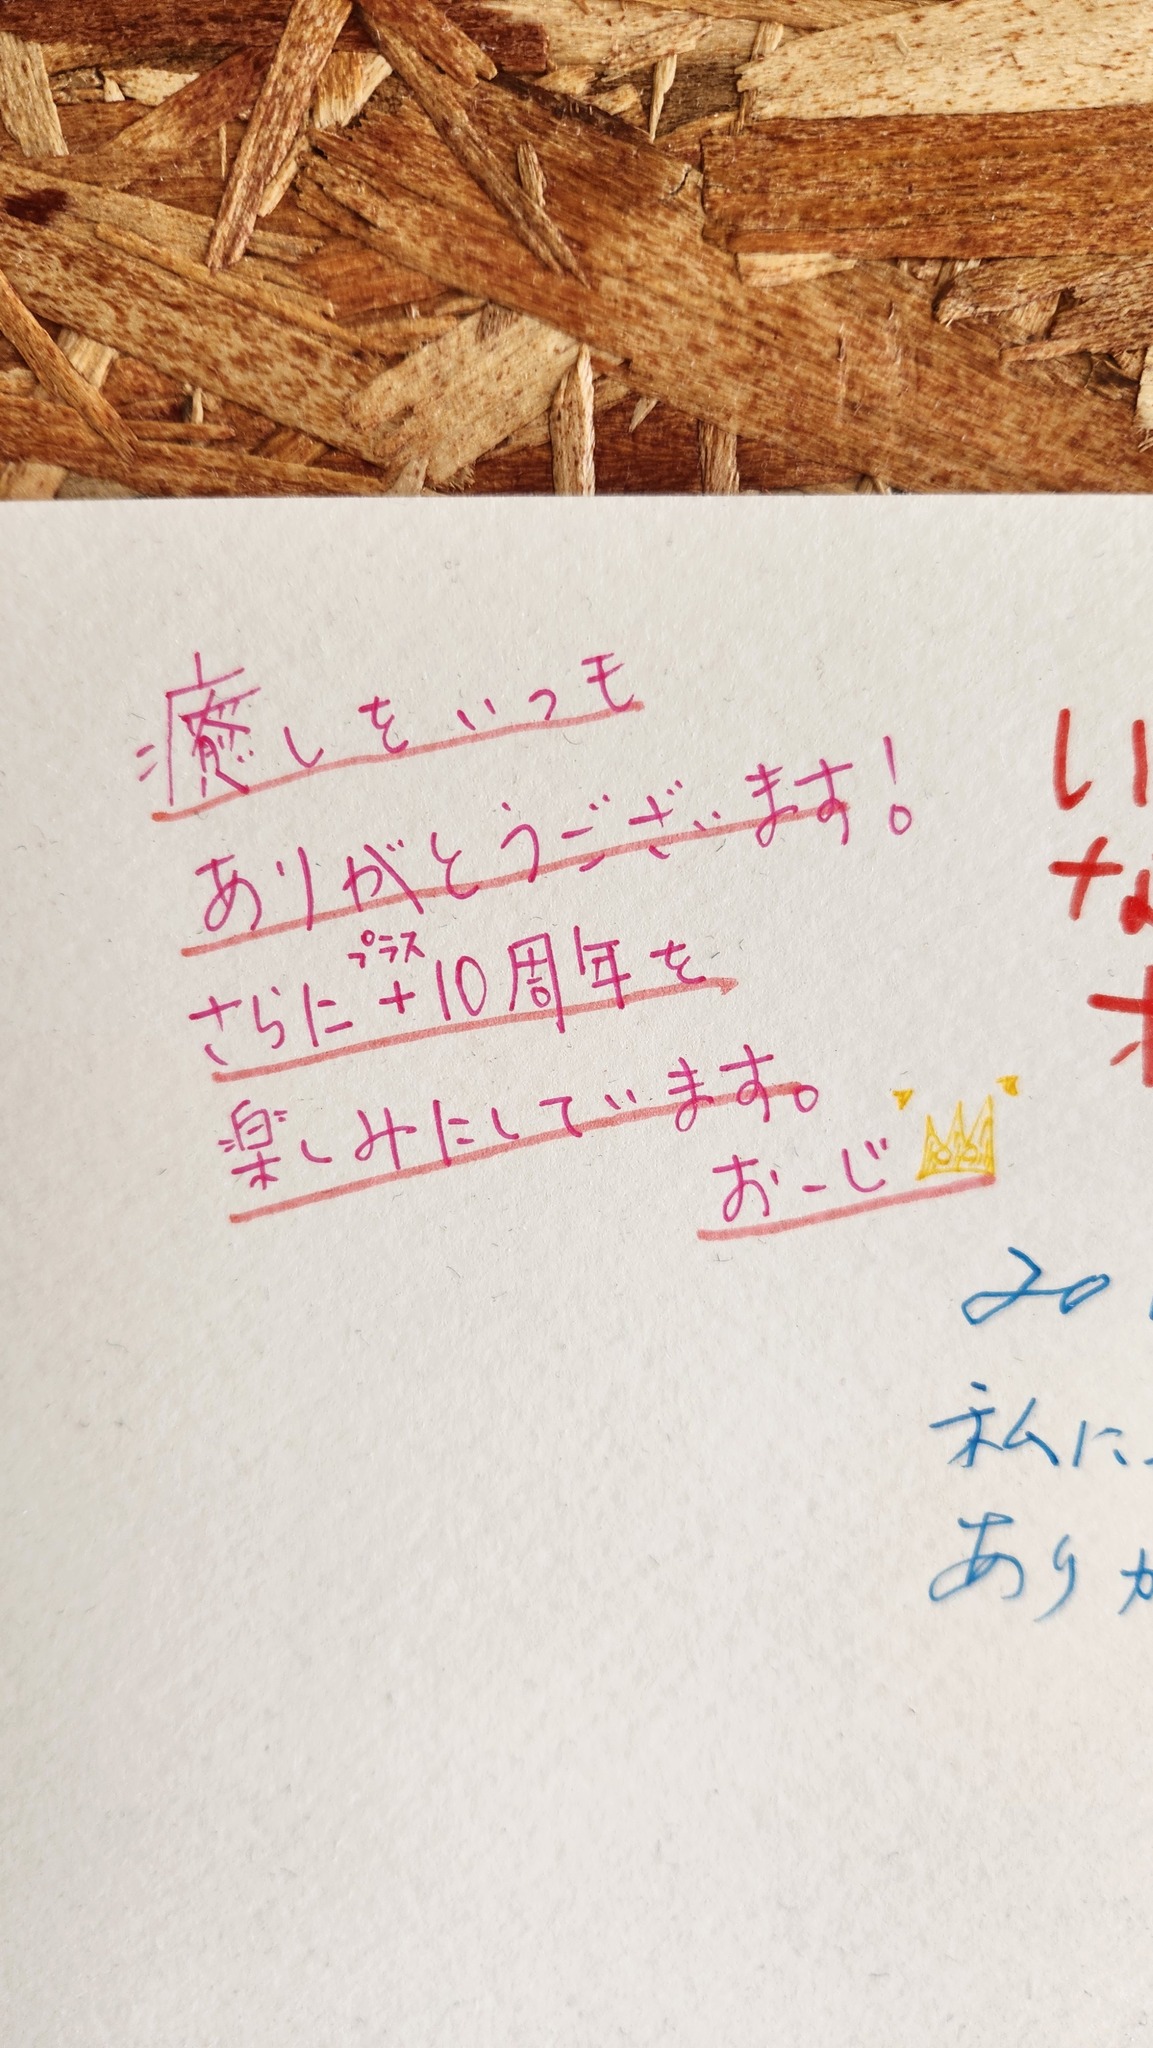 癒しをいつも
ありがとうございます!
プラス
さらに+10周年を
楽しみにしています。
おーじ
い
な
20
私に
ありが